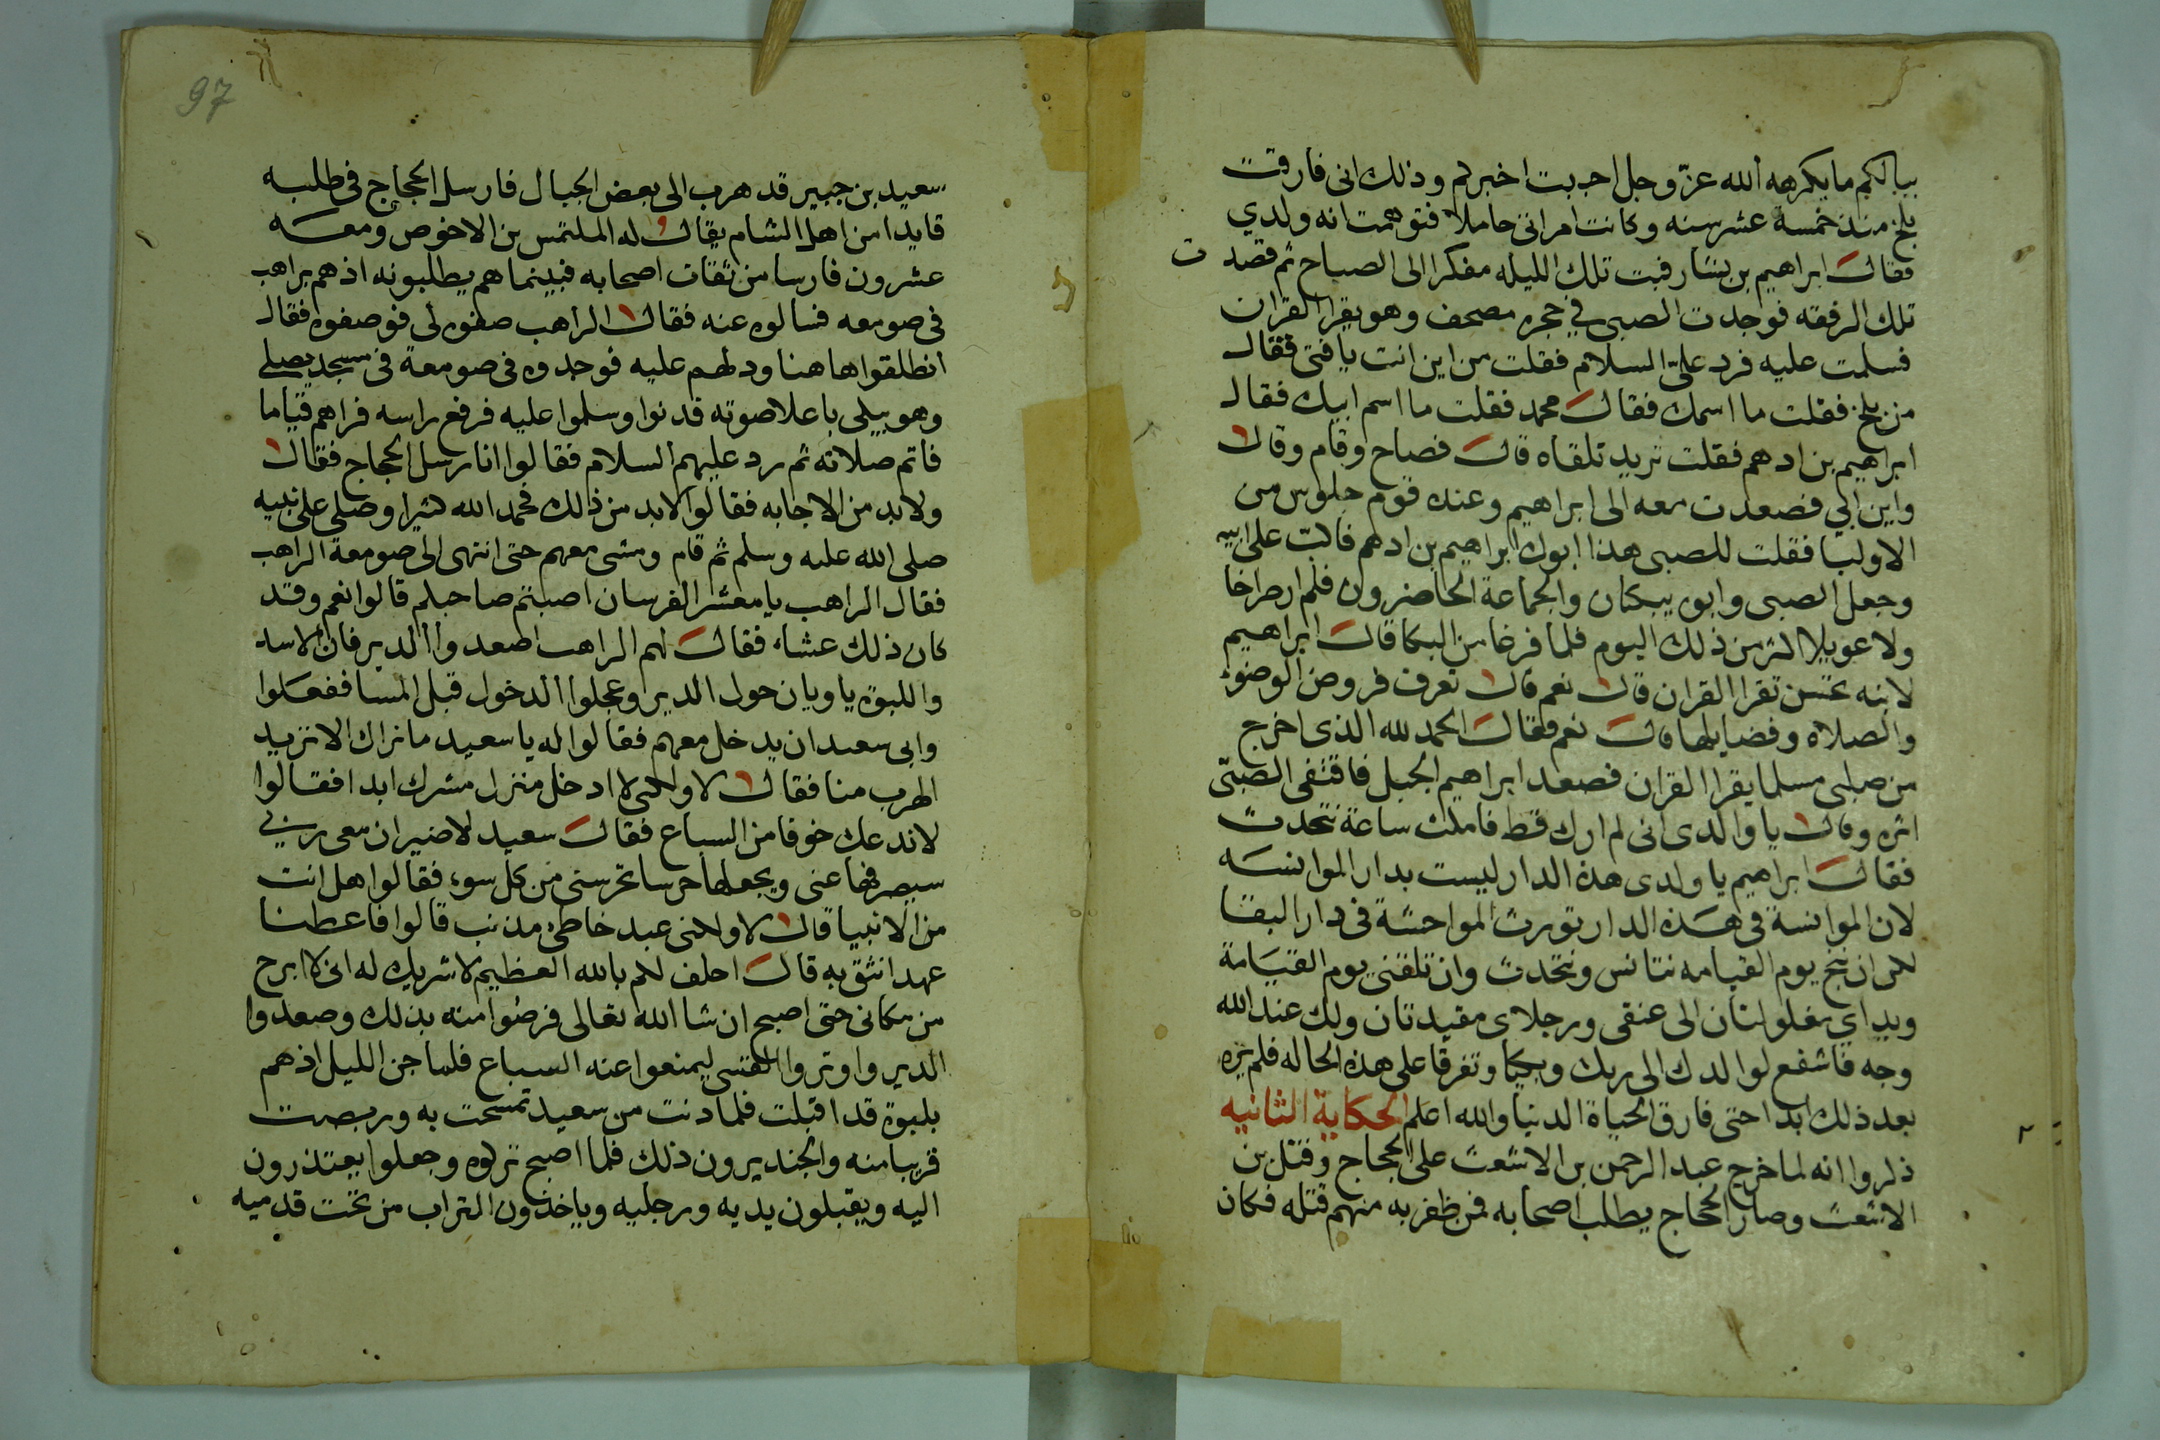 ببالكم ما يكرهه الله عز وجل احببت اخبركم وذلك انى فارقت
بلخ منذ خمسة عشر سنه وكانت امراتى حاملا فتوهمت انه ولدي
فقال ابراهيم بن بشار فبت تلك الليله مفكرا الى الصباح ثم قصدت
تلك الرفقه فوجدت الصبى في حجره مصحف وهو يقرا القران
فسلمت عليه فرد علىّ السلام فقلت من اين انت يا فتى فقال
من بلخ فقلت ما اسمك فقال محمد فقلت ما اسم ابيك فقال
ابراهيم بن ادهم فقلت تريد تلقاه قال فصاح وقام وقال
واين ابي فصعدت معه الى ابراهيم وعنده قوم جلوس من
الاوليا فقلت للصبى هذا ابوك ابراهيم بن ادهم فاكبّ على ابيه
وجعل الصبى وابوه يبكيان والجماعة الحاضرون فلم ار صراخا
ولا عويلا اكثر من ذلك اليوم فلما فرغا من البكا قال ابراهيم
لابنه تحسن تقرا القران قال نعم قال تعرف فروض الوضوء
والصلاه وفضايلها قال نعم فقال الحمد لله الذى اخرج
من صلبى مسلما يقرا القران فصعد ابراهيم الجبل فاقتفى الصبىّ
اثره وقال يا والدى انى لم ارك قط فامكث ساعة نتحدث
فقال ابراهيم يا ولدى هذه الدار ليست بدار الموانسه
لان الموانسة فى هذه الدار تورث المواحشة فى دار البقا
لكن ان ننج يوم القيامه نتانس ونتحدث وان تلقنى يوم القيامة
ويداي مغلولتان الى عنقى ورجلاى مقيدتان ولك عند الله
وجه فاشفع لوالدك الى ربك وبكيا وتفرقا على هذه الحاله فلم يره
بعد ذلك ابدا حتى فارق الحياة الدنيا والله اعلم الحكاية الثانيه
ذكروا انه لما خرج عبد الرحمن بن الاشعث على الحجاج وقتل بن
الاشعث وصار الحجاج يطلب اصحابه فمن ظفر به منهم قتله فكان
97
سعيد بن جبير قد هرب الى بعض الجبال فارسل الحجاج فى طلبه
قايدا من اهل الشام يقال له الملتمس بن الاخوص ومعه
عشرون فارسا من ثقات اصحابه فبينما هم يطلبونه اذ هم براهب
فى صومعه فسالوه عنه فقال الراهب صفوه لى فوصفوه فقال
انطلقوا ها هنا ودلهم عليه فوجدوه فى صومعة فى مسجد يصلى
وهو يبكى باعلا صوته فدنوا وسلموا عليه فرفع راسه فراهم قياما
فاتم صلاته ثم رد عليهم السلام فقالوا انا رسل الحجاج فقال
ولابد من الاجابه فقالوا لابد من ذلك فحمد الله كثيرا وصلى على نبيه
صلى الله عليه وسلم ثم قام ومشى معهم حتى انتهى الى صومعة الراهب
فقال الراهب يا معشر الفرسان اصبتم صاحبكم قالوا نعم وقد
كان ذلك عشاء فقال لهم الراهب اصعدوا الدير فان الاسد
واللبوة ياويان حول الدير وعجلوا الدخول قبل المسا ففعلوا
وابى سعيد ان يدخل معهم فقالوا له يا سعيد ما نراك الا تريد
الهرب منا فقال لا ولكنى لا ادخل منزل مشرك ابدا فقالوا
لا ندعك خوفا من السباع فقال سعيد لا ضير ان معى ربي
سيصرفها عنى ويجعلها حرسا تحرسنى من كل سوء فقالوا هل انت
من الانبيا قال لا ولكنى عبد خاطى مذنب قالوا فاعطنا
عهدا نثق به قال احلف لكم بالله العظيم لا شريك له انى لا ابرح
من مكانى حتى اصبح ان شا الله تعالى فرضوا منه بذلك وصعدوا
الدير واوتروا القسى ليمنعوا عنه السباع فلما جن الليل اذ هم
بلبوة قد اقبلت فلما دنت من سعيد تمسحت به وربضت
قريبا منه والجند يرون ذلك فلما اصبح نزلوه وجعلوا يعتذرون
اليه ويقبلون يديه ورجليه وياخذون التراب من تحت قدميه